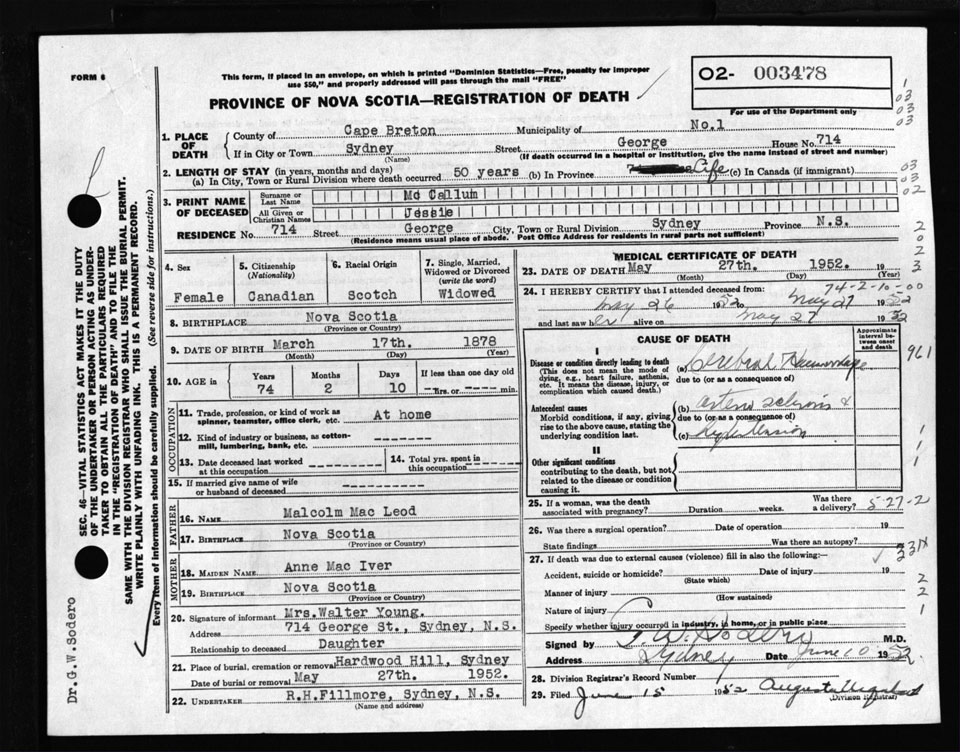 FORM 6
This form, if placed in an envelope, on which is printed "Dominion Statistics—Free, penalty for improper
use $50," and properly addressed will pass through the mail "FREE"
O2- 003478
For use of the Department only
PROVINCE OF NOVA SCOTIA—REGISTRATION OF DEATH
1. PLACE OF DEATH { County of Cape Breton Municipality of No.1
If in City or Town Sydney Street George House No. 714
(Name) (If death occurred in a hospital or institution, give the name instead of street and number)
2. LENGTH OF STAY (in years, months and days)
(a) In City, Town or Rural Division where death occurred 50 years (b) In Province Life (c) In Canada (if immigrant)
3. PRINT NAME OF DECEASED { Surname or Last Name Mc Callum
All Given or Christian Names Jessie
RESIDENCE No. 714 Street George City, Town or Rural Division Sydney Province N.S.
(Residence means usual place of abode. Post Office Address for residents in rural parts not sufficient)
4. Sex Female
5. Citizenship (Nationality) Canadian
6. Racial Origin Scotch
7. Single, Married, Widowed or Divorced (write the word) Widowed
8. BIRTHPLACE Nova Scotia
(Province or Country)
9. DATE OF BIRTH March 17th. 1878
(Month) (Day) (Year)
10. AGE in Years 74 Months 2 Days 10 If less than one day old --Hrs. or ---- min.
OCCUPATION
11. Trade, profession, or kind of work as spinner, teamster, office clerk, etc. At home
12. Kind of industry or business, as cotton-mill, lumbering, bank, etc. -------
13. Date deceased last worked at this occupation ---------
14. Total yrs. spent in this occupation -------
15. If married give name of wife or husband of deceased
FATHER
16. NAME Malcolm Mac Leod
17. BIRTHPLACE Nova Scotia
(Province or Country)
MOTHER
18. MAIDEN NAME Anne Mac Iver
19. BIRTHPLACE Nova Scotia
(Province or Country)
20. Signature of informant Mrs.Walter Young.
Address 714 George St., Sydney, N.S.
Relationship to deceased Daughter
21. Place of burial, cremation or removal Hardwood Hill, Sydney
Date of burial or removal May 27th. 1952.
22. UNDERTAKER R.H.Fillmore, Sydney, N.S.
(Name and address)
MEDICAL CERTIFICATE OF DEATH
23. DATE OF DEATH May 27th. 1952. 19
(Month) (Day) (Year)
74-2-10-00
24. I HEREBY CERTIFY that I attended deceased from:
May 26 1952 to May 27 1952
and last saw her alive on May 27 1952
CAUSE OF DEATH
Approximate interval between onset and death
I
Disease or condition directly leading to death
(This does not mean the mode of dying, e.g., heart failure, asthenia, etc. It means the disease, injury, or complication which caused death.)
(a) Cerebral Haemorrhage
due to (or as a consequence of)
Antecedent causes
Morbid conditions, if any, giving rise to the above cause, stating the underlying condition last.
(b) arterio sclerosis &
due to (or as a consequence of)
(c) hypertension
II
Other significant conditions
contributing to the death, but not related to the disease or condition causing it.
25. If a woman, was the death associated with pregnancy? Duration weeks. Was there a delivery? 5-27-2
26. Was there a surgical operation? Date of operation 19
State findings Was there an autopsy?
27. If death was due to external causes (violence) fill in also the following:—
Accident, suicide or homicide? Date of injury 19
(State which)
Manner of injury
(How sustained)
Nature of injury
Specify whether injury occurred in industry, in home, or in public place
Signed by G W Sodero M.D.
Address Sydney Date June 10 1952.
28. Division Registrar's Record Number
29. Filed June 15 1952 Augusta
(Division Registrar)
1
03
03
03
03
03
02
2
0
2
3
961
1
1
1
331x
2
2
1
SEC. 46—VITAL STATISTICS ACT MAKES IT THE DUTY
OF THE UNDERTAKER OR PERSON ACTING AS UNDER-
TAKER TO OBTAIN ALL THE PARTICULARS REQUIRED
IN THE "REGISTRATION OF DEATH" AND TO FILE THE
SAME WITH THE DIVISION REGISTRAR WHO SHALL ISSUE THE BURIAL PERMIT.
WRITE PLAINLY WITH UNFADING INK. THIS IS A PERMANENT RECORD.
Every item of information should be carefully supplied. (See reverse side for instructions.)
Dr.G.W.Sodero